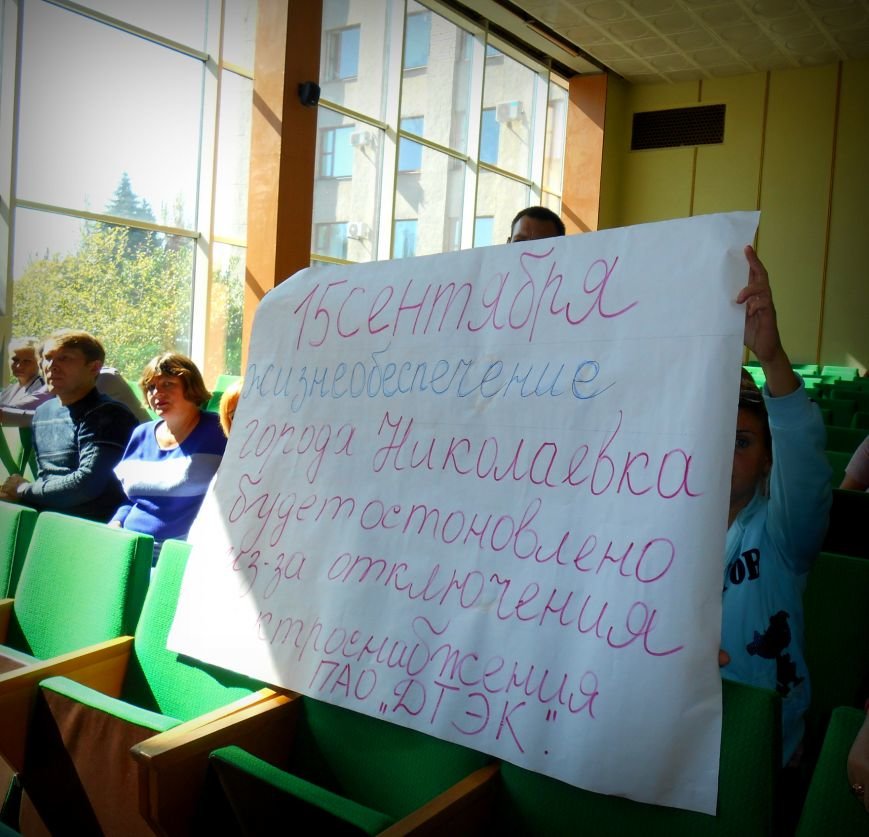 15 сентября
жизнеобеспечение
города Николаевка
будет остоновлено
из-за отключения
ктроснабжения
ПАО „ДТЭК".